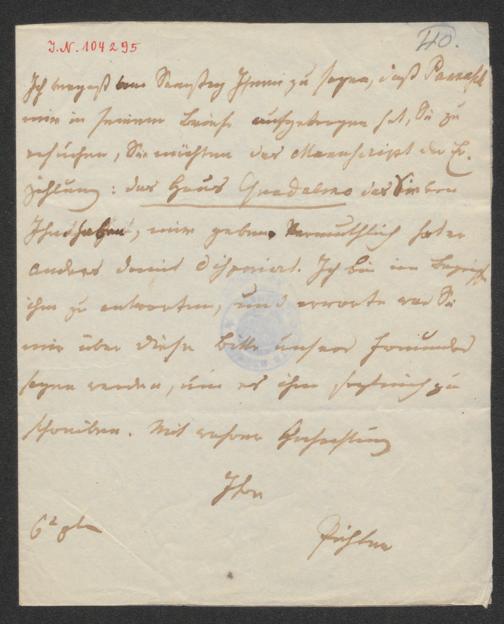 J.N. 104295
40.
Ich vergaß am Samstag Ihnen zu sagen, daß
mir in seinem Briefe aufgetragen hat, Sie zu
ersuchen, Sie möchten das Manuscript der Er-
zählung: das Haus das Sie bey
Ihnen haben, mir geben. Vermuthlich hat er
anders damit disponirt. Ich bin im Begriffe
ihm zu antworten, und erwarte was Sie
mir über diese Bitte unsers Freundes
sagen werden, um es ihm sogleich zu
schreiben. Mit wahrer Hochachtung
Ihre
Pichler